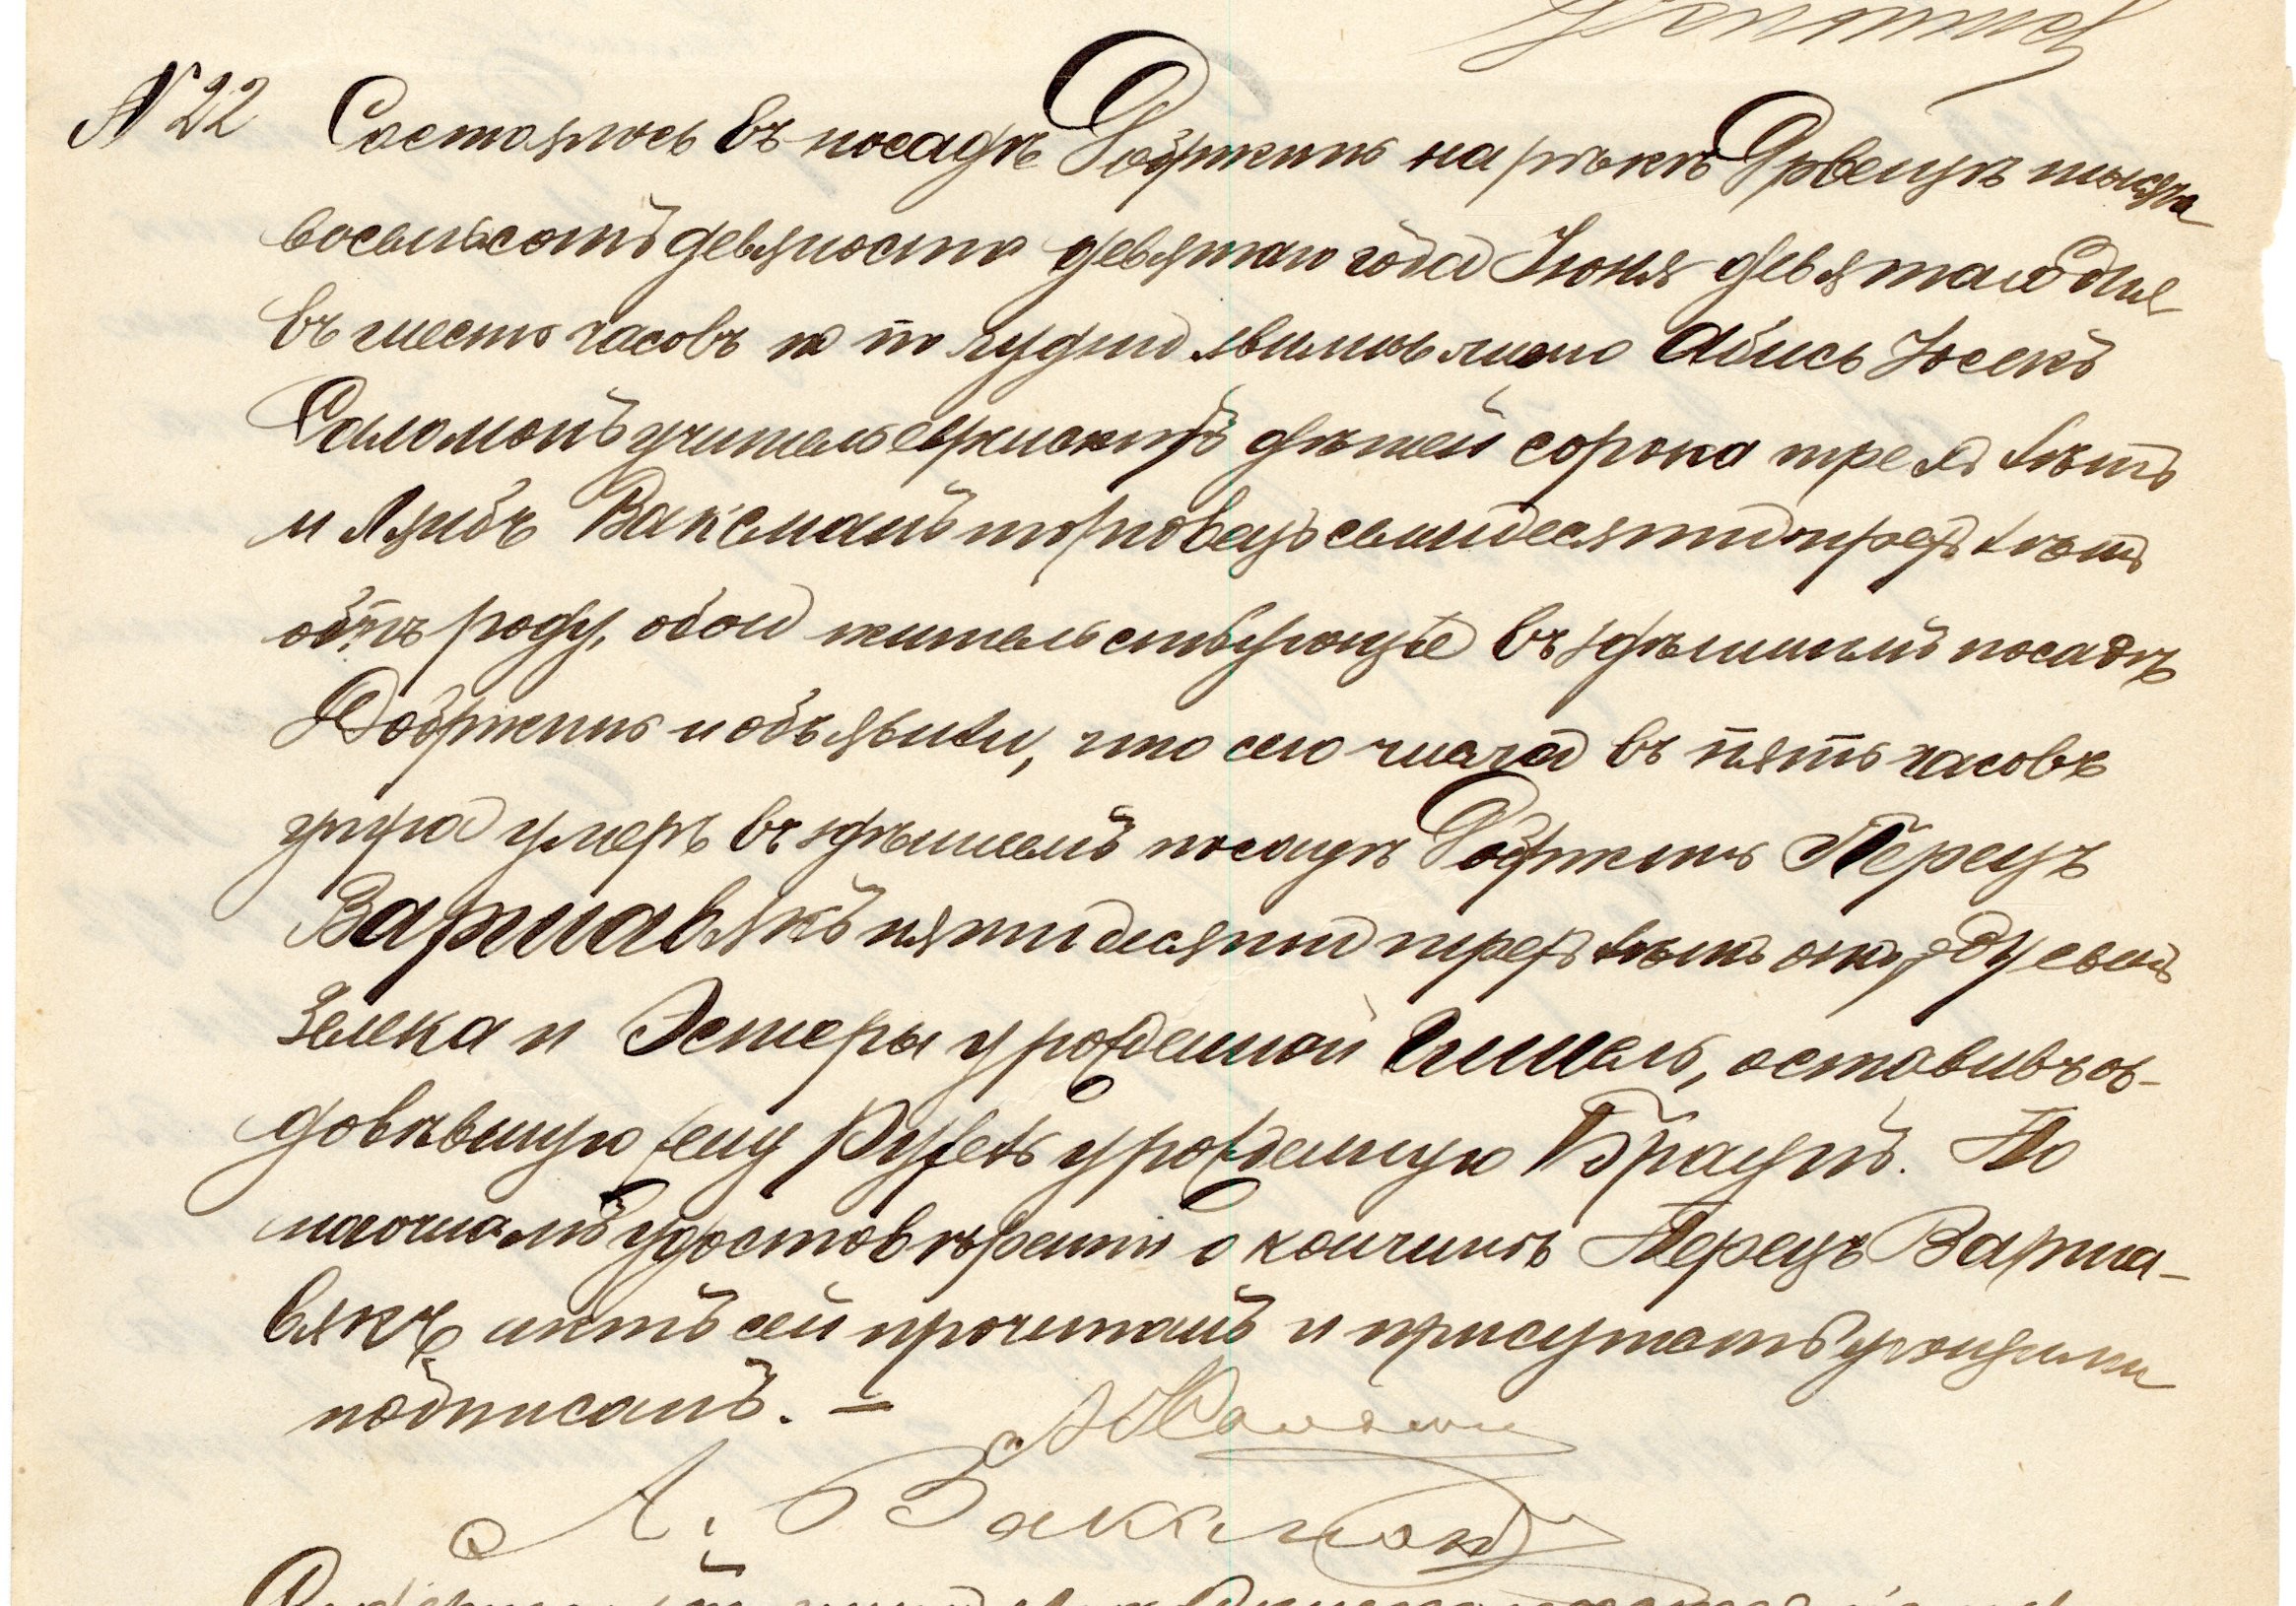 N 22 Состоялось въ посадѣ Добржинь на рѣкѣ Дрвенцѣ тысяча
восемьсотъ девяносто девятаго года Іюня девятаго дня
въ шесть часовъ по полудни явились лично Абись Іосекъ
Саломонъ учитель еврейскихъ дѣтей сорока трехъ лѣтъ
и Ляибъ Ваксманъ торговецъ семидесяти трехъ лѣтъ
отъ роду, обои жительствующіе въ здѣшнимъ посадѣ
Добржинь и объявили, что сего числа въ пять часовъ
утра умеръ въ здѣшнемъ посадѣ Добржинь Перецъ
Варшавякъ пятидесяти трехъ лѣтъ отъ роду сынъ
Зелека и Эстеры урожденной, оставивъ ов-
довѣвшую жену урожденную Браунъ. По
наочномъ удостовѣреніи о кончинѣ Перецъ Варша-
вякъ актъ сей прочитанъ и присутствующими
подписанъ. —
А. Ваксман